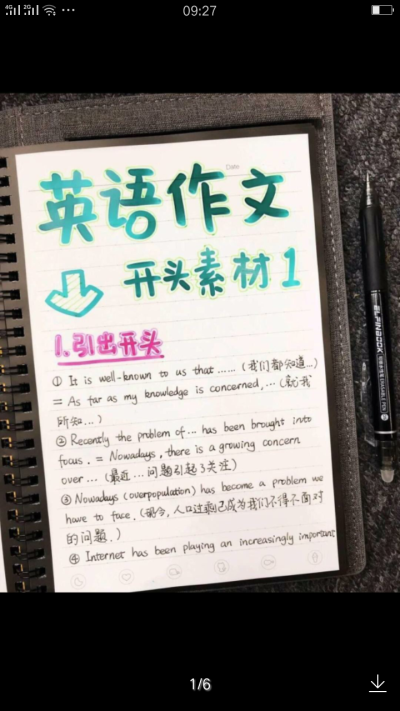 4G 2G 09:27
Date
英语作文
开头素材1
1.引出开头
① It is well-known to us that ...... (我们都知道...)
= As far as my knowledge is concerned, ... (就我
所知...)
② Recently the problem of ... has been brought into
focus. = Nowadays, there is a growing concern
over ... (最近 ... 问题引起了关注)
③ Nowadays (overpopulation) has become a problem we
have to face. (如今, 人口过剩已成为我们不得不面对
的问题.)
④ Internet has been playing an increasingly important
ELFINBOOK
1/6